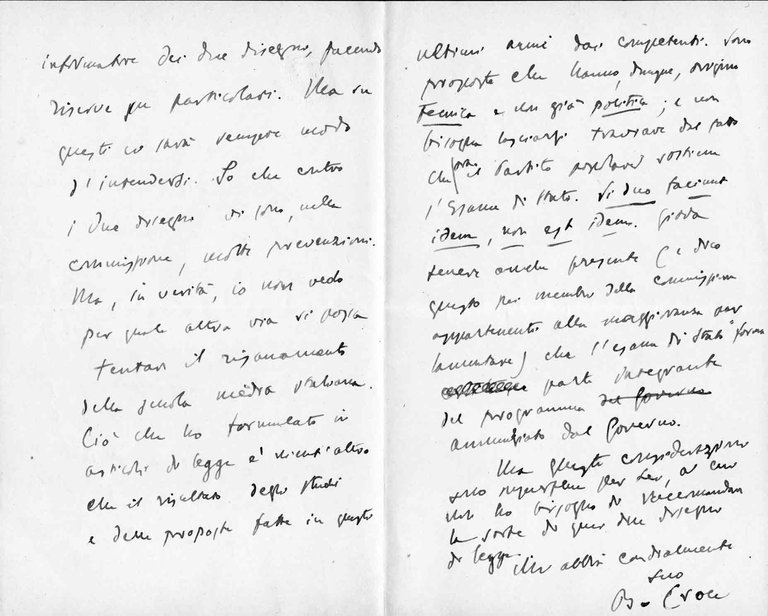 informatore dei due disegni, facendo
riserve pei particolari. Ma su
questi ci sarà sempre modo
d'intendersi. So che contro
i due disegni vi sono, nella
commissione, molte prevenzioni.
Ma, in verità, io non vedo
per quale altra via si possa
tentare il risanamento
della scuola media italiana.
Ciò che ho formulato in
articoli di legge è nient'altro
che il risultato degli studi
e delle proposte fatte in questi
ultimi anni dai competenti. Sono
proposte che hanno, dunque, origine
tecnica e non già politica; e non
bisogna lasciarsi traviare dal fatto
che il Partito popolare sostiene
l'Esame di Stato. Si duo faciunt
idem, non est idem. Giova
tenere anche presente (e dico
questo pei membri della commissione
appartenenti alla maggioranza par
lamentare) che l'esame di Stato forma
parte integrante
del programma del Governo
annunziato dal Governo.
Ma queste considerazioni
sono superflue per Lei, a cui
non ho bisogno di raccomandare
la sorte di quei due disegni
di legge. Mi abbia cordialmente
suo
B. Croce